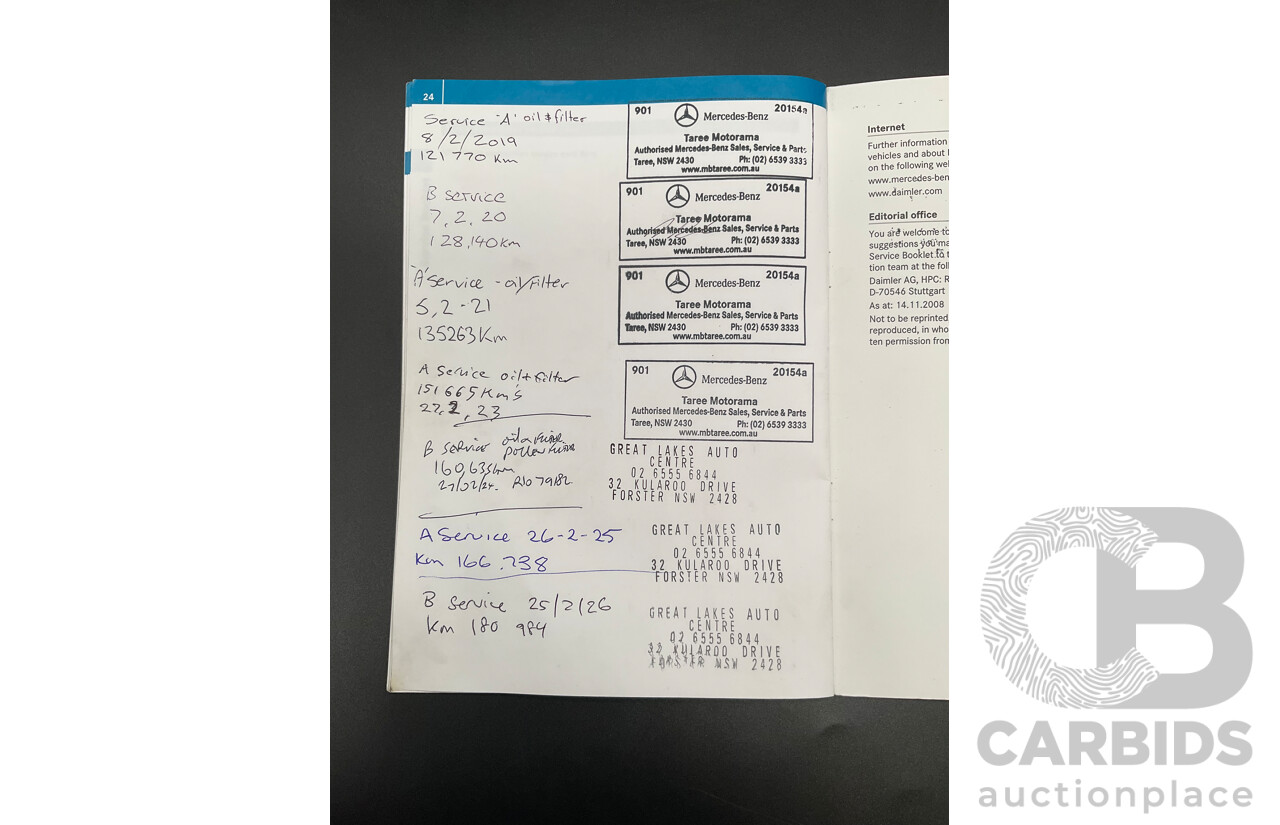 24
Service 'A' oil & filter
8/2/2019
121 770 Km
901 20154a
Mercedes-Benz
Taree Motorama
Authorised Mercedes-Benz Sales, Service & Parts
Taree, NSW 2430 Ph: (02) 6539 3333
www.mbtaree.com.au
B service
7, 2, 20
128,140km
901 20154a
Mercedes-Benz
Taree Motorama
Authorised Mercedes-Benz Sales, Service & Parts
Taree, NSW 2430 Ph: (02) 6539 3333
www.mbtaree.com.au
'A' service - oil/filter
5, 2 - 21
135263 Km
901 20154a
Mercedes-Benz
Taree Motorama
Authorised Mercedes-Benz Sales, Service & Parts
Taree, NSW 2430 Ph: (02) 6539 3333
www.mbtaree.com.au
A service oil + filter
151 665 Km's
27, 2, 23
901 20154a
Mercedes-Benz
Taree Motorama
Authorised Mercedes-Benz Sales, Service & Parts
Taree, NSW 2430 Ph: (02) 6539 3333
www.mbtaree.com.au
B service oil
160,635km
27/02/24. R1079182
GREAT LAKES AUTO
CENTRE
02 6555 6844
32 KULAROO DRIVE
FORSTER NSW 2428
A Service 26-2-25
Km 166.738
GREAT LAKES AUTO
CENTRE
02 6555 6844
32 KULAROO DRIVE
FORSTER NSW 2428
B service 25/2/26
Km 180 984
GREAT LAKES AUTO
CENTRE
02 6555 6844
32 KULAROO DRIVE
FORSTER NSW 2428
Internet
Further information
vehicles and about
on the following we
www.mercedes-ben
www.daimler.com
Editorial office
You are welcome to
suggestions you ma
Service Booklet to t
tion team at the foll
Daimler AG, HPC: R
D-70546 Stuttgart
As at: 14.11.2008
Not to be reprinted
reproduced, in who
ten permission from
CB
CARBIDS
auctionplace